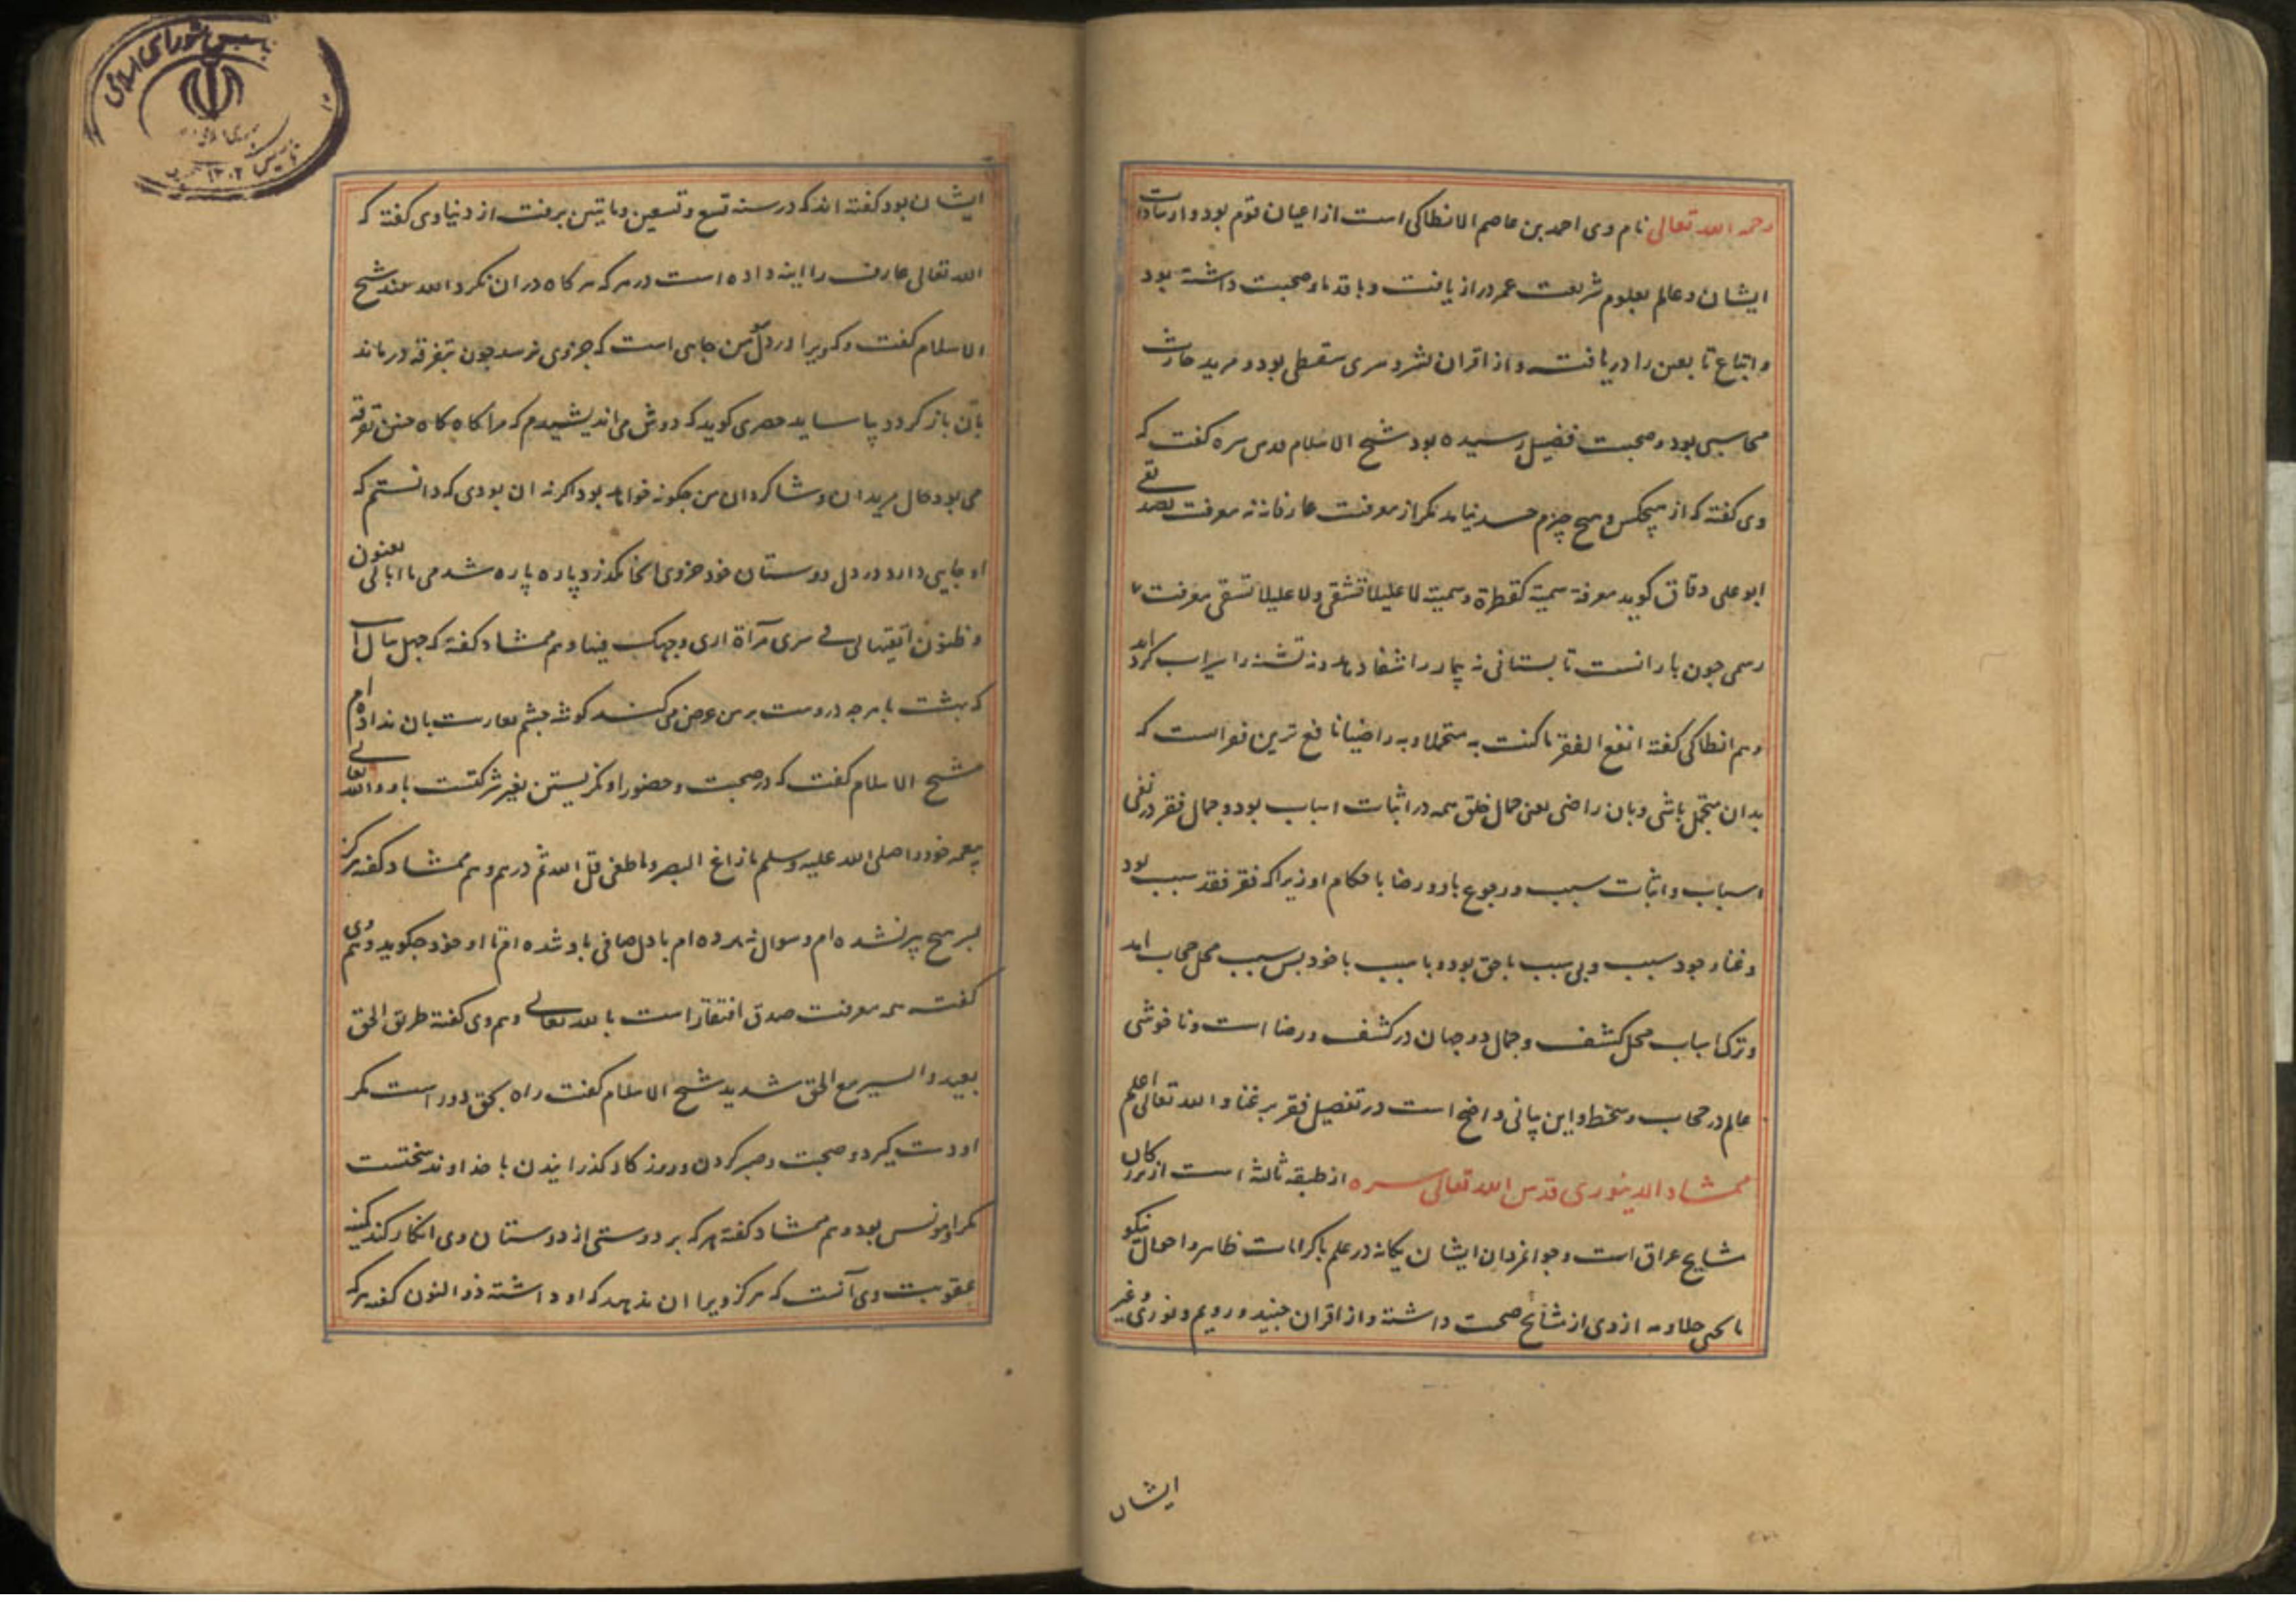 رحمه الله تعالی نام وی احمد بن عاصم الانطاکی است از اعیان قوم بود و از سادات
ایشان و عالم بعلوم شریعت عمر دراز یافت و با قدما صحبت داشته بود
و اتباع تابعین را دریافت و از اقران بشر و سری سقطی بود و مرید حارث
محاسبی بود و صحبت فضیل رسیده بود شیخ الاسلام قدس سره کفت که
وی کفته که از هیچکس و هیچ چیزم حسد نیاید مکر از معرفت عارفانه نه معرفت تصدیقی
ابو علی دقاق کوید معرفة رسمیة کقطرة وسمیة لا علیلا تشفی ولا علیلا تسقی معرفت
رسمی چون بارانست تابستانی نه بیمار را شفا دهد و نه تشنه را سیراب کرداند
و هم انطاکی کفته انفع الفقر ما کنت به متجملا و به راضیا نافع ترین فقر است که
بدان متجمل باشی و بان راضی یعنی جمال خلق همه در اثبات اسباب بود و جمال فقر در نفی
اسباب و اثبات سبب و رجوع باو و رضا باحکام او زیرا که فقر فقد سبب بود
و غنا وجود سبب و بی سبب با حق بود و با سبب با خود پس سبب محل حجاب امد
و ترک اسباب محل کشف و جمال دو جهان در کشف و رضا است و ناخوشی
عالم در حجاب و سخط و این بیانی واضح است در تفضیل فقر بر غنا و الله تعالی اعلم
ممشاد الدینوری قدس الله تعالی سره از طبقه ثالثه است از بزرکان
مشایخ عراق است و جوانمردان ایشان یکانه در علم با کرامات ظاهر و احوال نیکو
با یحیی جلا و مه ازوی از مشایخ صحبت داشته و از اقران جنید و رویم و نوری و غیر
ایشان
ایشان بود کفته اند که در سنه تسع و تسعین و مایتین برفت از دنیا وی کفته که
الله تعالی عارف را اینه داده است در سر که هر کاه در ان نکرد الله بیند شیخ
الاسلام کفت و کویرا در دل مؤمن جایی است که جزوی نرسد چون بتفرقه درماند
بآن باز کردد پاساید حصری کوید که دوش می اندیشیدم که مرا کاه کاه چنین تفرقه
می بود حال مریدان و شاکردان من چکونه خواهد بود اکر نه ان بودی که دانستم که
او جایی دارد در دل دوستان خود جزوی انجا نکذرد پاره پاره شدمی
و ظنون اتقیتها لی فی سری مرآة اری وجهک فیها و هم ممشاد کفته که چهل سال است
که بهشت با هرچه دروست بر من عرض می کنند کوشه چشم بعاریت بان نداده ام
شیخ الاسلام کفت که در صحبت و حضور او نکریستن بغیر شرکتست باو و الله تعالی
پیغمبر خود را صلی الله علیه و سلم ما زاغ البصر و ما طغی قل الله ثم ذرهم و هم ممشاد کفته هرکز
بر هیچ پیر نشده ام و سوال نبرده ام با دل صافی باو شده ام تا او خود چکوید و هم وی
کفته همه معرفت صدق افتقار است بالله تعالی و هم وی کفته طریق الحق
بعید و السیر مع الحق شدید شیخ الاسلام کفت راه بحق دور است مکر
او دست کیرد و صحبت و صبر کردن و روزکار کذرانیدن با خداوند سختست
مکر او مونس بود و هم ممشاد کفته هر که بر دوستی از دوستان وی انکار کند کمینه
عقوبت وی آنست که هرکز ویرا ان ندهد که او داشته ذو النون کفته هر که
مجلس شورای اسلامی
۱۳۰۲